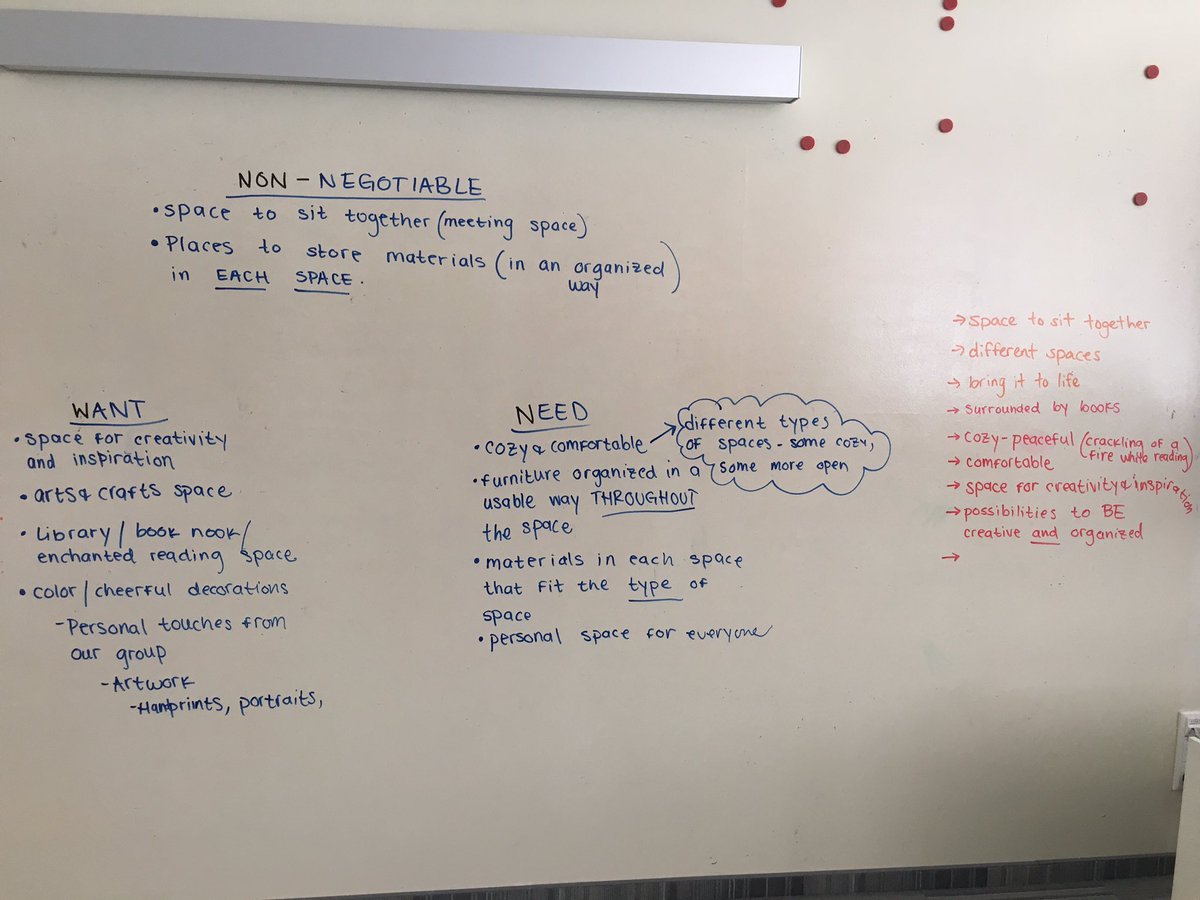 NON - NEGOTIABLE
• space to sit together (meeting space)
• Places to store materials (in an organized way)
in EACH SPACE.
WANT
• space for creativity
and inspiration
• arts & crafts space
• Library / book nook /
enchanted reading space
• color / cheerful decorations
- Personal touches from
our group
- Artwork
- Handprints, portraits,
NEED
• cozy & comfortable →
different types
of spaces - some cozy,
some more open
• furniture organized in a
usable way THROUGHOUT
the space
• materials in each space
that fit the type of
space
• personal space for everyone
→ space to sit together
→ different spaces
→ bring it to life
→ surrounded by books
→ cozy - peaceful (crackling of a
fire while reading)
→ comfortable
→ space for creativity & inspiration
→ possibilities to BE
creative and organized
→